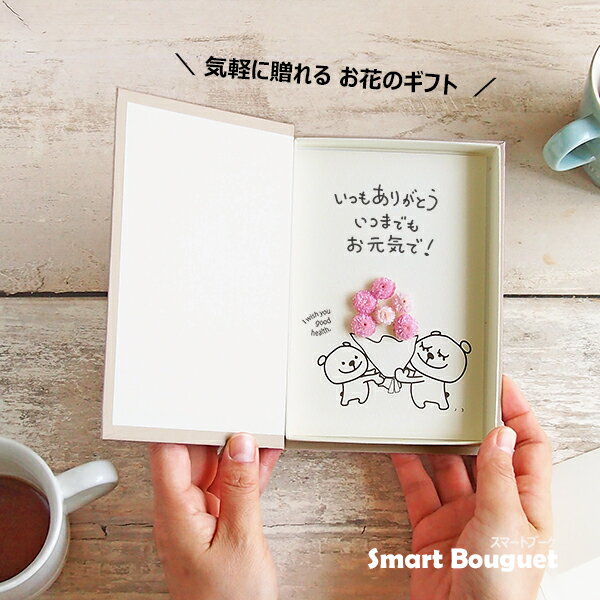 気軽に贈れる お花のギフト
いつもありがとう
いつまでも
お元気で!
I wish you
good
health.
スマートブーケ
Smart Bouquet